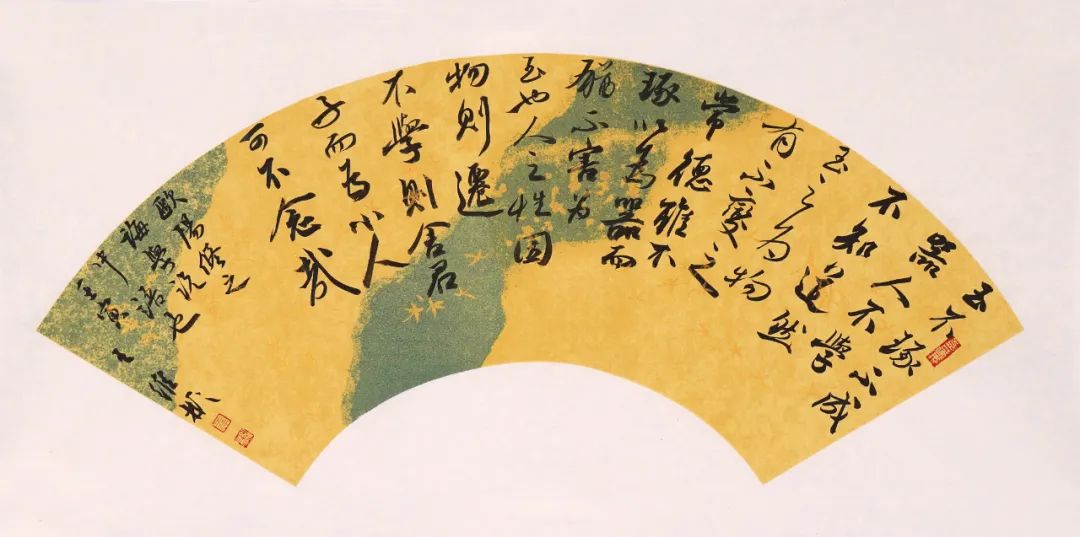 玉不琢不成
器人不學
不知道然
玉之為物
有不變之
常德雖不
琢以為器而
猶不害為
玉也人之性因
物則遷
不學則舍君
子而為小人
可不念哉
歐陽修之
誨學說也
壬寅王維